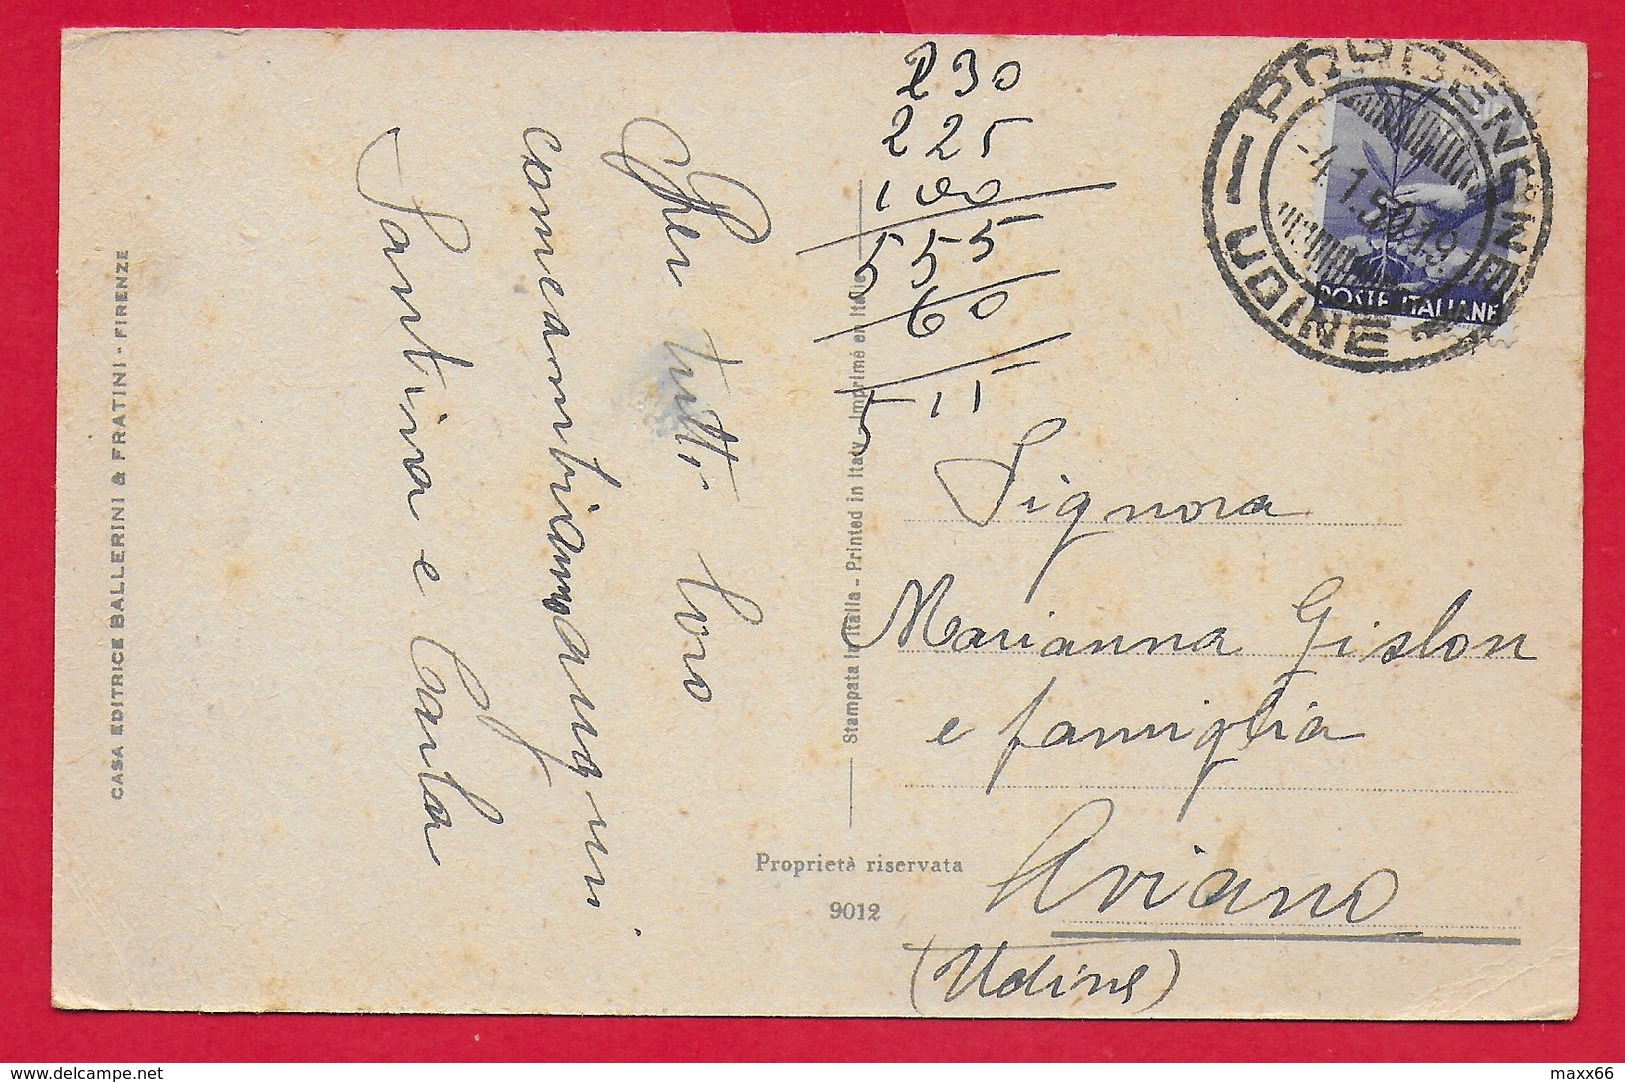 CASA EDITRICE BALLERINI & FRATINI - FIRENZE
Per tutti loro
contraccambiamo auguri
Santina e Carla
230
225
100
555
60
511
Stampata in Italia - Printed in Italy - Imprimé en Italie
Proprietà riservata
9012
PORDENONE
UDINE
-4.1.50.19
POSTE ITALIANE
Signora
Marianna Gislon
e famiglia
Aviano
(Udine)
delcampe.net
maxx66